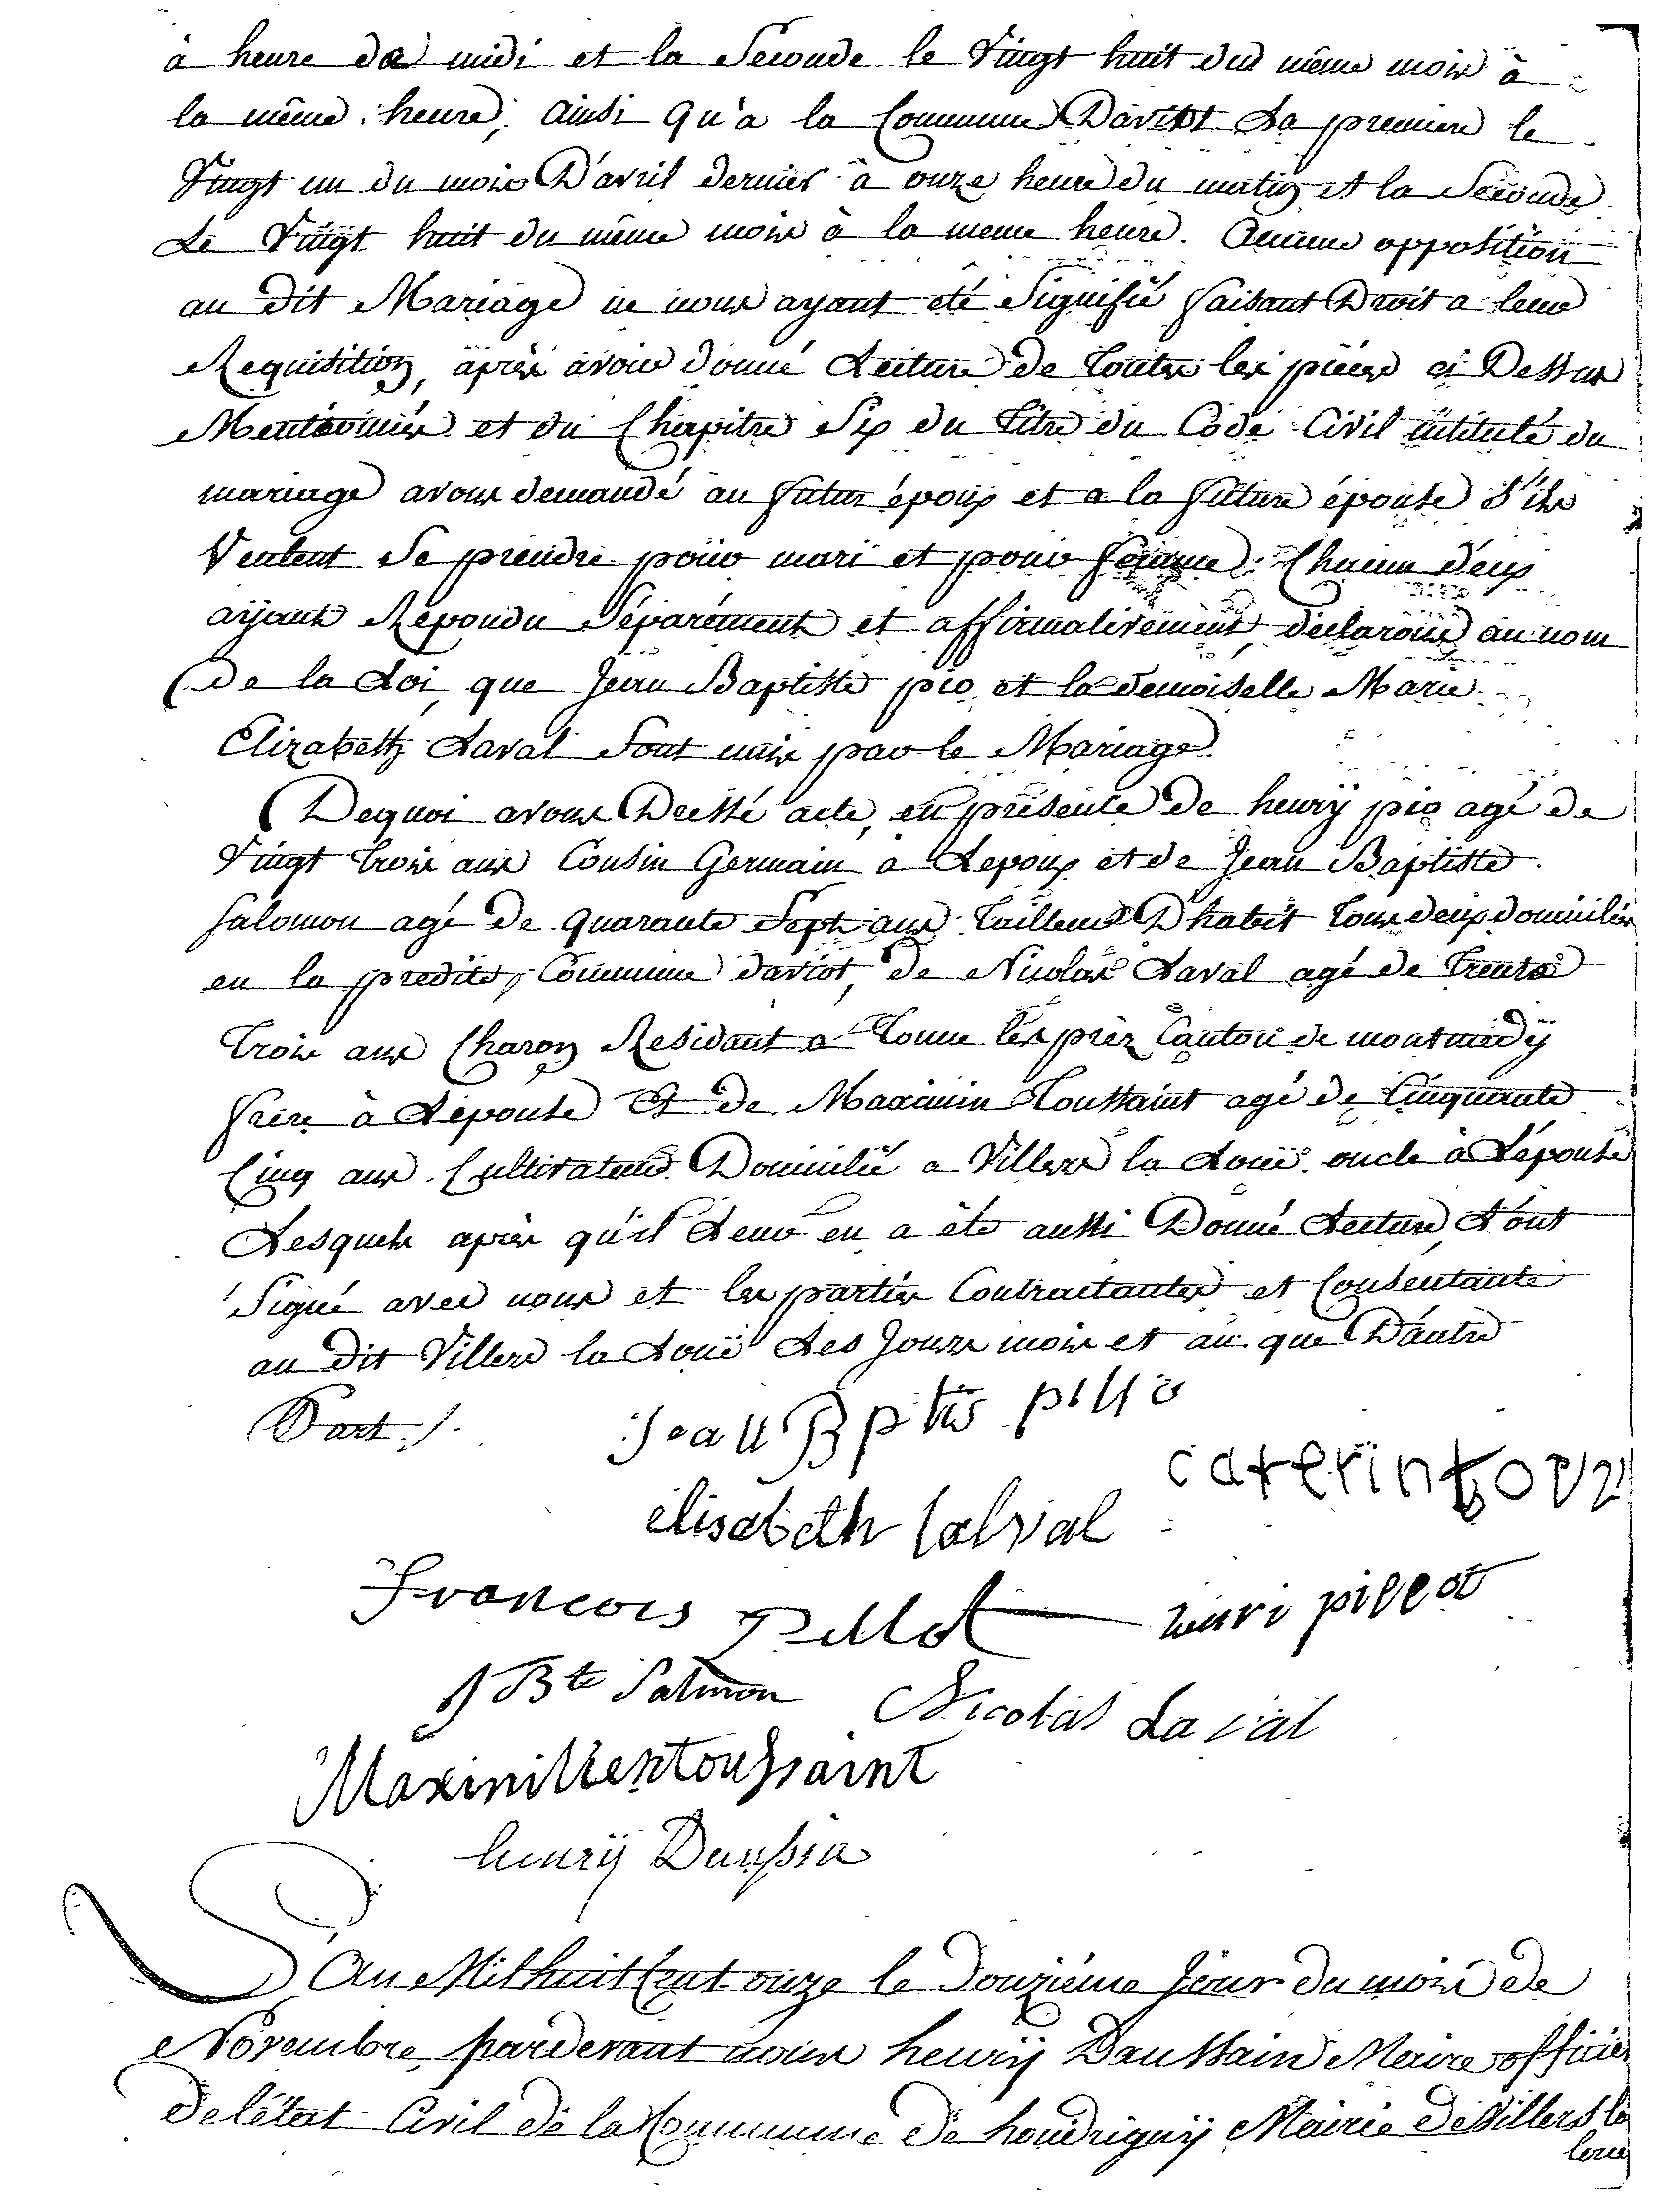 à heure de midi et la Seconde le Vingt huit dud même mois à
la même heure, ainsi qu'a la Commune Daviot La premiere le
Vingt un du mois D'avril dernier à onze heure du matin et la Seconde
Le Vingt huit du même mois à la meme heure. Aucune opposition
au dit Mariage ne nous ayant eté Signifié faisant Droit a leur
Requisition, après avoir donné Lecture de toutes les pièces ci Dessus
Mentionnés et du Chapitre Six du Titre du Code Civil intitulé du
mariage avons demandé au futur époux et a la future épouse S'ils
Veulent Se prendre pour mari et pour femme; Chacun d'eux
ayant Répondu Séparément et affirmativement, declarons au nom
De la Loi, que Jean Baptiste pio et la demoiselle Marie
Elizabeth Laval Sont unis par le Mariage.
Dequoi avons Dressé acte, en présence de henry pio agé de
Vingt trois ans Cousin Germain a Lepoux et de Jean Baptiste
Salomon agé de quarante Sept ans Tailleur D'habit tous deux domiciliés
en la predite Commune daviot, de Nicolas Laval agé de trente
trois ans Charon Residant a Tonne les prèz Canton de montmedÿ
frere à Lépouse Et de Maximin Toussaint agé de Cinquante
Cinq ans Cultivateur Domicilié a Villers la Loue oncle à Lépouse
Lesquels après qu'il Leur en a été aussi Donné Lecture, L'ont
Signé avec nous et les parties Contractantes et Consentante
au dit Villers la Loue Les Jours mois et an que D'autre
Part ./.
Jean Bptis pillo
caterin
elisabeth lalval
francois Pillot henri pilleot
J Bte Salmon Nicolas Laval
Maximillien toussaint
henrÿ Daussin
L'an Mil huit Cent onze le Douzième Jour du mois de
Novembre, pardevant nous henrÿ Daussain Maire officier
De l'état Civil de la Commune de houdrignÿ Mairie de Villers la
loue